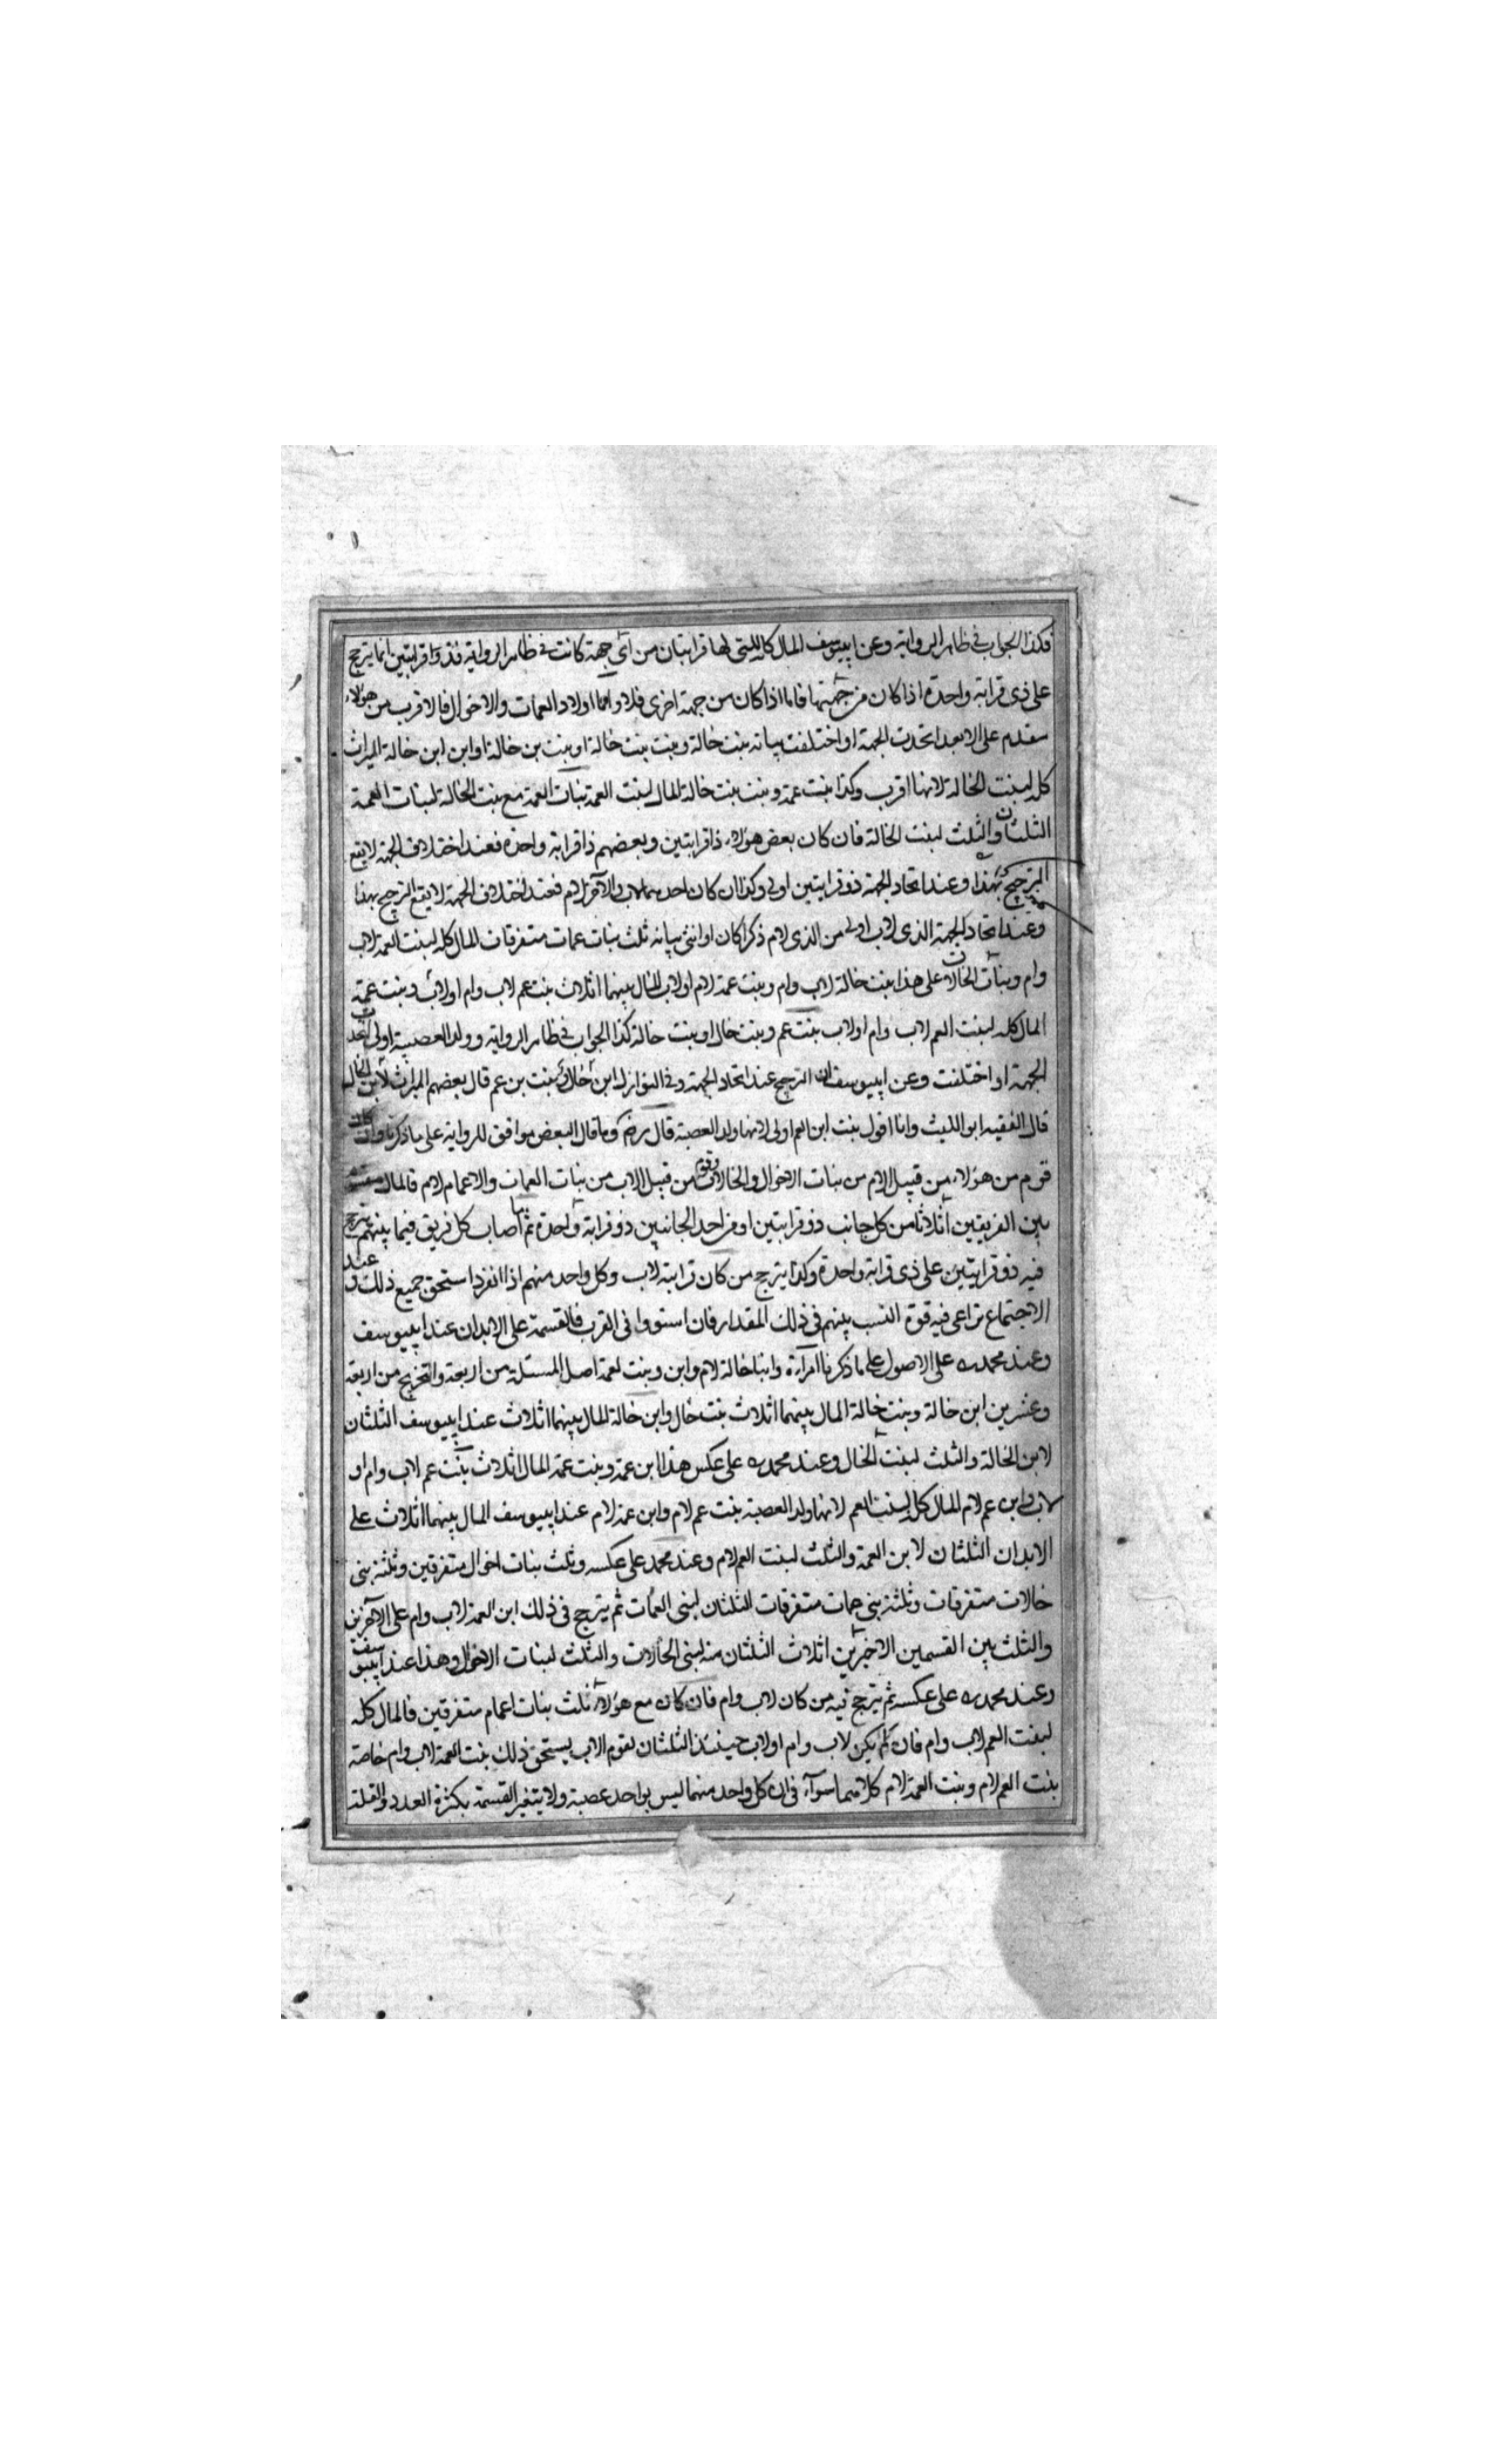 وكذا الجواب في ظاهر الرواية وعن ابييوسف المال كله للتي لها قرابتان من اي جهة كانت في ظاهر الرواية فذو قرابتين انما يترجح
على ذي قرابة واحدة اذا كان من جهتها فاما اذا كان من جهة اخرى فلا واما اولاد العمات والاخوال فالاقرب من هؤلاء
مقدم على الابعد اتحدت الجهة او اختلفت بيانه بنت خالة وبنت بنت خالة او بنت بن خالة او ابن ابن خالة الميراث
كله لبنت الخالة لانها اقرب وكذا بنت عمة وبنت بنت خالة المال لبنت العمة بنات العمة مع بنت الخالة لبنات العمة
الثلثان والثلث لبنت الخالة فان كان بعض هؤلاء ذا قرابتين وبعضهم ذا قرابة واحدة فعند اختلاف الجهة لا يقع
الترجيح بهذا وعند اتحاد الجهة ذو قرابتين اولى وكذا ان كان احدهما لاب والآخر لام فعند اختلاف الجهة لا يقع الترجيح بهذا
وعند اتحاد الجهة الذي لاب اولى من الذي لام ذكرا كان او انثى بيانه ثلث بنات عمات متفرقات المال كله لبنت العمة لاب
وام وبنات الخالات على هذا بنت خالة لاب وام وبنت عمة لام او لاب المال بينهما اثلاث بنت عم لاب وام او لاب وبنت عمة
المال كله لبنت العم لاب وام او لاب بنت عم وبنت خال او بنت خالة كذا الجواب في ظاهر الرواية وولد العصبة اولى اتحدت
الجهة او اختلفت وعن ابييوسف ان الترجيح عند اتحاد الجهة وفي النوازل ابن خال وبنت بن عم قال بعضهم الميراث لابن الخال
قال الفقيه ابو الليث وانا اقول بنت ابن العم اولى لانها ولد العصبة قال رضه وما قال البعض موافق للرواية على ما ذكرنا وان كان
قوم من هؤلاء من قبيل الام من بنات الاخوال والخالات وقوم من قبيل الاب من بنات العمات والاعمام لام فالمال
بين الفريقين اثلاثا من كل جانب ذو قرابتين او من احد الجانبين ذو قرابة واحدة ثم ما اصاب كل فريق فيما بينهم يترجح
فيه ذو قرابتين على ذي قرابة واحدة وكذا يترجح من كان قرابة لاب وكل واحد منهم اذا انفرد استحق جميع ذلك وعند
الاجتماع تراعى فيه قوة النسب بينهم في ذلك المقدار فان استووا في القرب فالقسمة على الابدان عند ابييوسف
وعند محمد ره على الاصول على ما ذكرنا امراة وابنا خالة لام وابن وبنت لعمة اصل المسئلة من اربعة والتخريج من اربعة
وعشرين ابن خالة وبنت خالة المال بينهما اثلاث بنت خال وابن خالة المال بينهما اثلاث عند ابييوسف الثلثان
لابن الخالة والثلث لبنت الخال وعند محمد ره على عكس هذا ابن عمة وبنت عمة المال اثلاث بنت عم لاب وام او
لاب وابن عم لام المال كله لبنت العم لانها ولد العصبة بنت عم لام وابن عمة لام عند ابييوسف المال بينهما اثلاث على
الابدان الثلثان لابن العمة والثلث لبنت العم لام وعند محمد على عكسه وثلث بنات اخوال متفرقين وثلثة بني
خالات متفرقات وثلثة بني عمات متفرقات الثلثان لبني العمات ثم يترجح في ذلك ابن العمة لاب وام على الآخرين
والثلث بين القسمين الاخيرين اثلاث الثلثان منه لبني الخالات والثلث لبنات الاخوال وهذا عند ابييوسف
وعند محمد ره على عكسه ثم يترجح فيه من كان لاب وام فان كان مع هؤلاء ثلث بنات اعمام متفرقين فالمال كله
لبنت العم لاب وام فان لم يكن لاب وام او لاب حينئذ الثلثان لقوم الاب يستحق ذلك بنت العمة لاب وام خاصة
بنت العم لام وبنت العمة لام كلاهما سواء في ان كل واحد منهما ليس بواحد عصبة ولا يتغير القسمة بكثرة العدد والقلة